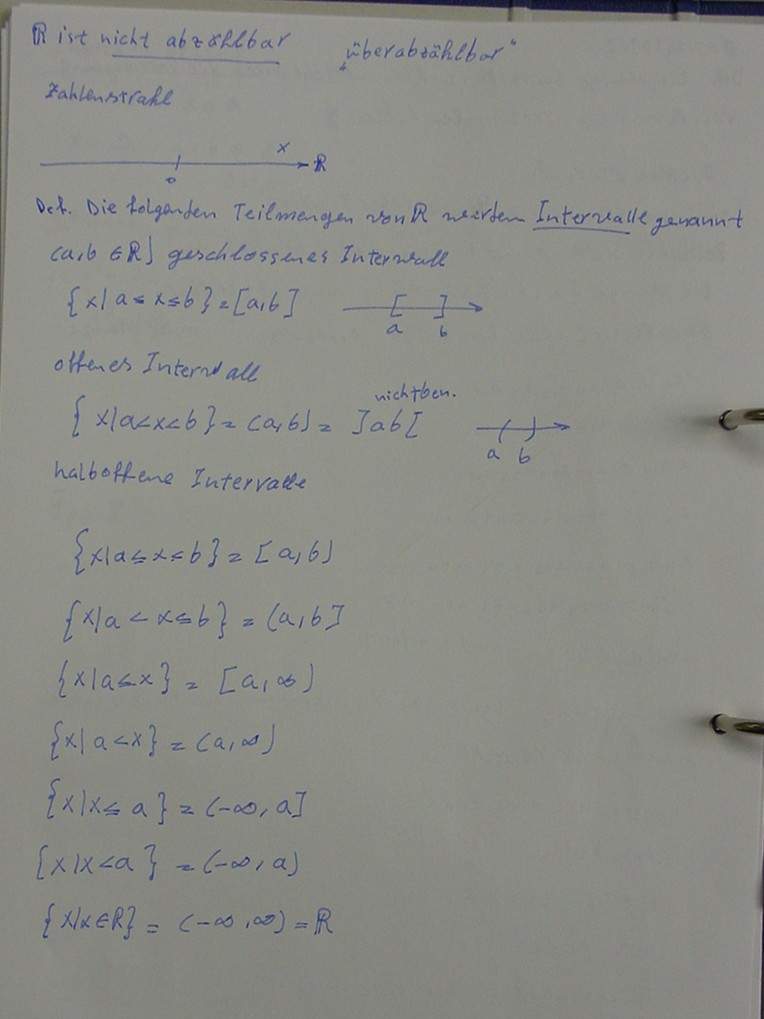 ℝ ist nicht abzählbar „überabzählbar"
Zahlenstrahl
0 x ℝ
Def. Die folgenden Teilmengen von ℝ werden Intervalle genannt
(a,b ∈ ℝ) geschlossenes Intervall
{x | a ≤ x ≤ b} = [a,b] a b
offenes Intervall
nicht ben.
{x | a < x < b} = (a,b) = ]a b[ a b
halboffene Intervalle
{x | a ≤ x ≤ b} = [a,b)
{x | a < x ≤ b} = (a,b]
{x | a ≤ x} = [a,∞)
{x | a < x} = (a,∞)
{x | x ≤ a} = (-∞, a]
{x | x < a} = (-∞, a)
{x | x ∈ ℝ} = (-∞, ∞) = ℝ